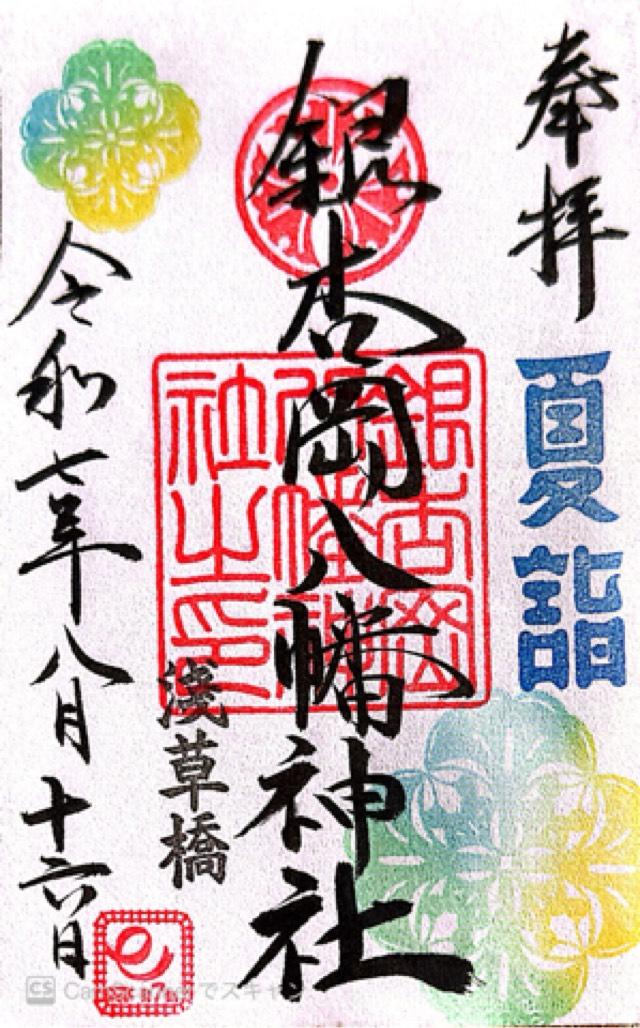 奉拝
夏詣
銀杏岡八幡神社
銀杏岡
八幡神
社之印
浅草橋
令和七年八月十六日
CS CamScannerでスキャン